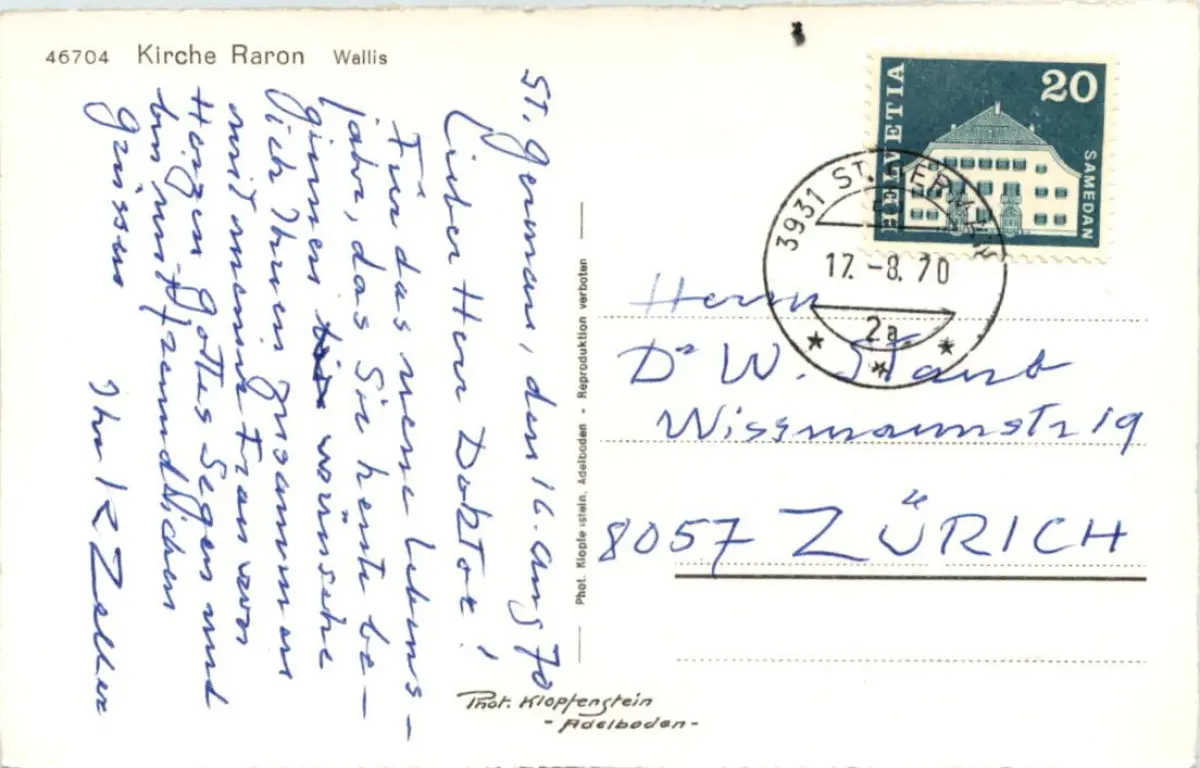 46704 Kirche Raron Wallis
St. German, den 16. Aug 70
Lieber Herr Doktor!
Für das neue Lebens-
jahr, das Sie heute be-
ginnen wünsche
ich Ihnen zusammen
mit meiner Frau von
Herzen Gottes Segen und
bin mit freundlichen
Grüssen
Ihr K Zeller
Phot. Klopfenstein, Adelboden - Reproduktion verboten
Phot. Klopfenstein
- Adelboden -
HELVETIA
20
SAMEDAN
3931 ST. GERMAN
17.-8.70
2a
Herrn
Dr W. Staub
Wissmannstr 19
8057 ZÜRICH